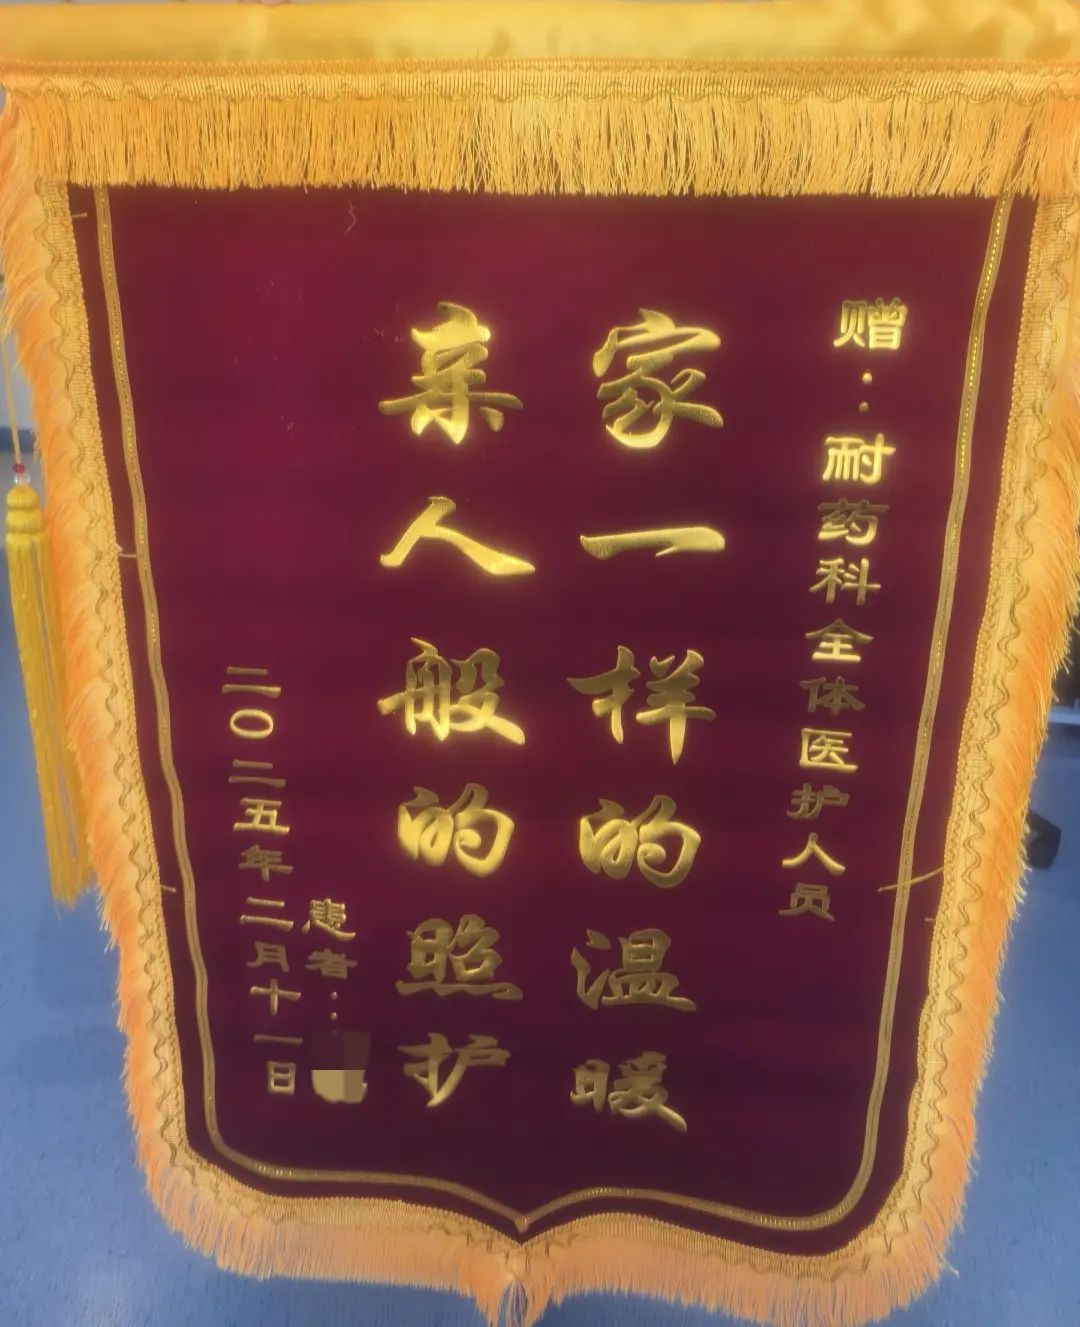 赠：耐药科全体医护人员
家一样的温暖
亲人般的照护
患者：
二〇二五年二月十一日